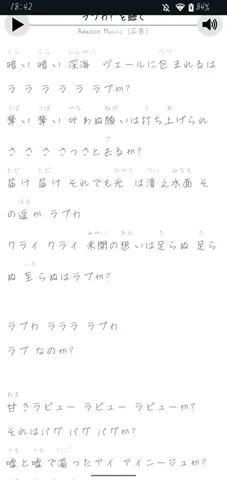 18:42
84%
ラブか? を聴く
Amazon Music (広告)
くら くら しんかい つつ
暗い 暗い 深海 ヴェールに包まれるは
ラ ラ ラ ラ ラ ラブか?
うば うば かな ねが う あ
奪い 奪い 叶わぬ願いは打ち上げられ
さ
さ さ さ さっさと去るか?
とど とど ひかり つい みなも
届け 届け それでも光 は潰え水面 そ
はる
の遥か ラブか
みかい おも た た
クライ クライ 未開の想いは足らぬ 足ら
いた
ぬ 至らぬはラブか?
ラブか ラララ ラブか
ラブ なのか?
あま
甘きラビュー ラビュー ラビューか?
それはバグ バグ バグか?
うそ うそ にご
嘘と嘘で濁ったアイ アイニージュか?